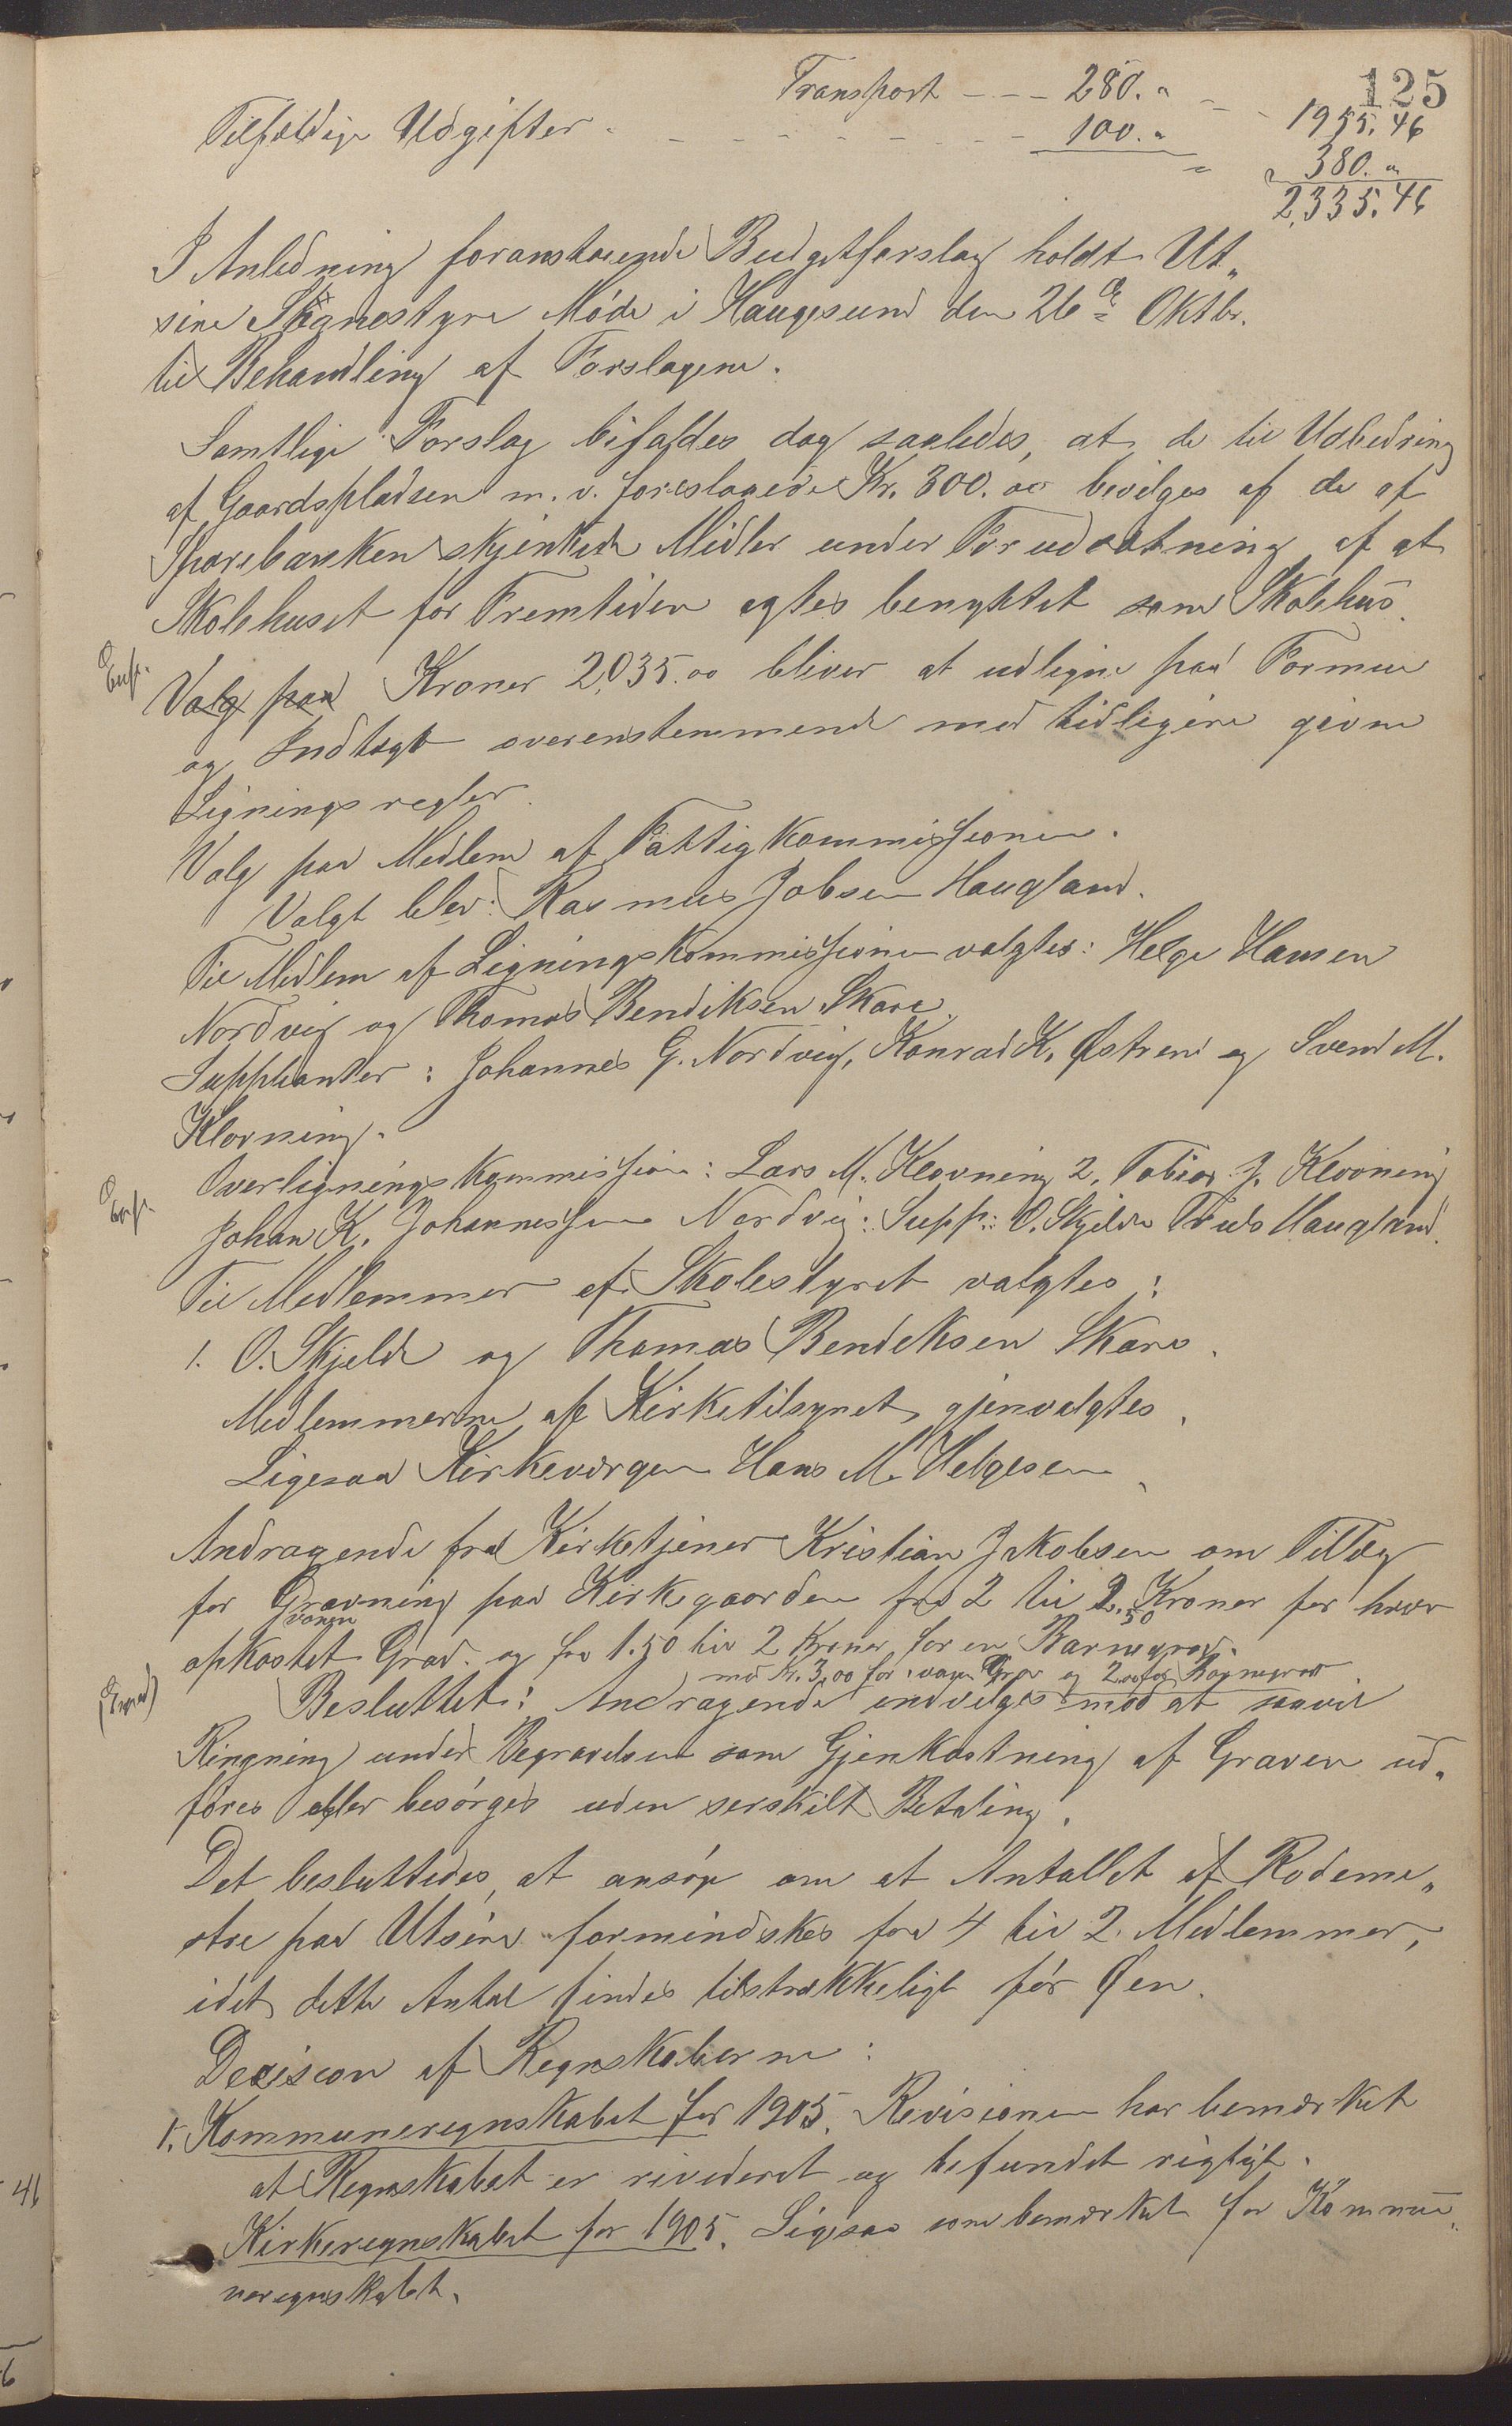 125
Transport - - - 280. "
1955.46
Tilfældige Udgifter - - - - - - - - 100. "
" 380. "
2,335.46
I Anledning foranstaaende Budgetforslag holdt Ut„
sire Sognestyre Møde i Haugesund den 26de Oktbr.
til Behandling af Forslagene.
Samtlige Forslag bifaldes dog saaledes, at de til Udbedring
af Gaardspladsen m. v. foreslagede Kr. 300.00 bevilges af de af
Sparebanken skjenkede Midler under Forudsætning af at
Skolehuset for Fremtiden agtes benyttet som Skolehus.
Valg paa Kroner 2,035.00 bliver at udligne paa Formue
og Indtægt overenstemmende med tidligere givne
Ligningsregler.
Valg paa Medlem af Fattigkommissionen.
Valgt blev: Rasmus Jobsen Haugland.
Til Medlem af Ligningskommissionen valgtes: Helge Hansen
Nordvig og Thomas Bendiksen Skare.
Supplianter: Johannes G. Nordvig, Konrad K. Østrem og Svend M.
Klovning.
Overligningskommission: Lars M. Klovning 2, Tobias J. Klovning
Johan K. Johannessen Nordvig: Supp: O. Skjelde Truls Haugland.
Til Medlemmer af Skolestyret valgtes:
1. O. Skjelde og Thomas Bendiksen Skare.
Medlemmerne af Kirketilsynet gjenvalgtes.
Ligesaa Kirkeværgen Hans M. Helgesen.
Andragende fra Kirketjener Kristian Jakobsen om Tillæg
for Gravning paa Kirkegaarden fra 2 til 2.50 Kroner for hver
voxen
opkastet Grav. og fra 1.50 til 2 Kroner for en Barnegrav.
med Kr. 3,00 for voxen Grav og 2.00 for Barnegrav
Besluttet: Andragende indvilges mod at saavel
Ringning under Begravelsen som Gjenkastning af Graven ud„
føres eller besørges uden serskilt Betaling.
Det besluttedes, at ansøge om at Antallet af Rodeme„
stre paa Utsire formindskes fra 4 til 2 Medlemmer,
idet dette Antal findes tilstrækkeligt for Øen.
Decision af Regnskaberne:
1. Kommuneregnskabet for 1905. Revisionen har bemærket
at Regnskabet er revideret og befundet rigtigt.
Kirkeregnskabet for 1905. Ligesaa som bemærket for Kommu„
neregnskabet.